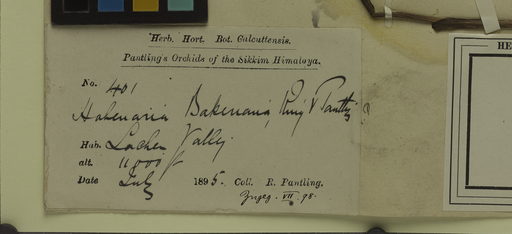 Herb. Hort. Bot. Calcuttensis.
Pantling's Orchids of the Sikkim Himalaya.
No. 401
Habenaria Bakeriana, King & Pantlg
Hab. Lachen Valley
alt. 11000 ft
Date July 1895. Coll. R. Pantling.
VII. 98.
HE